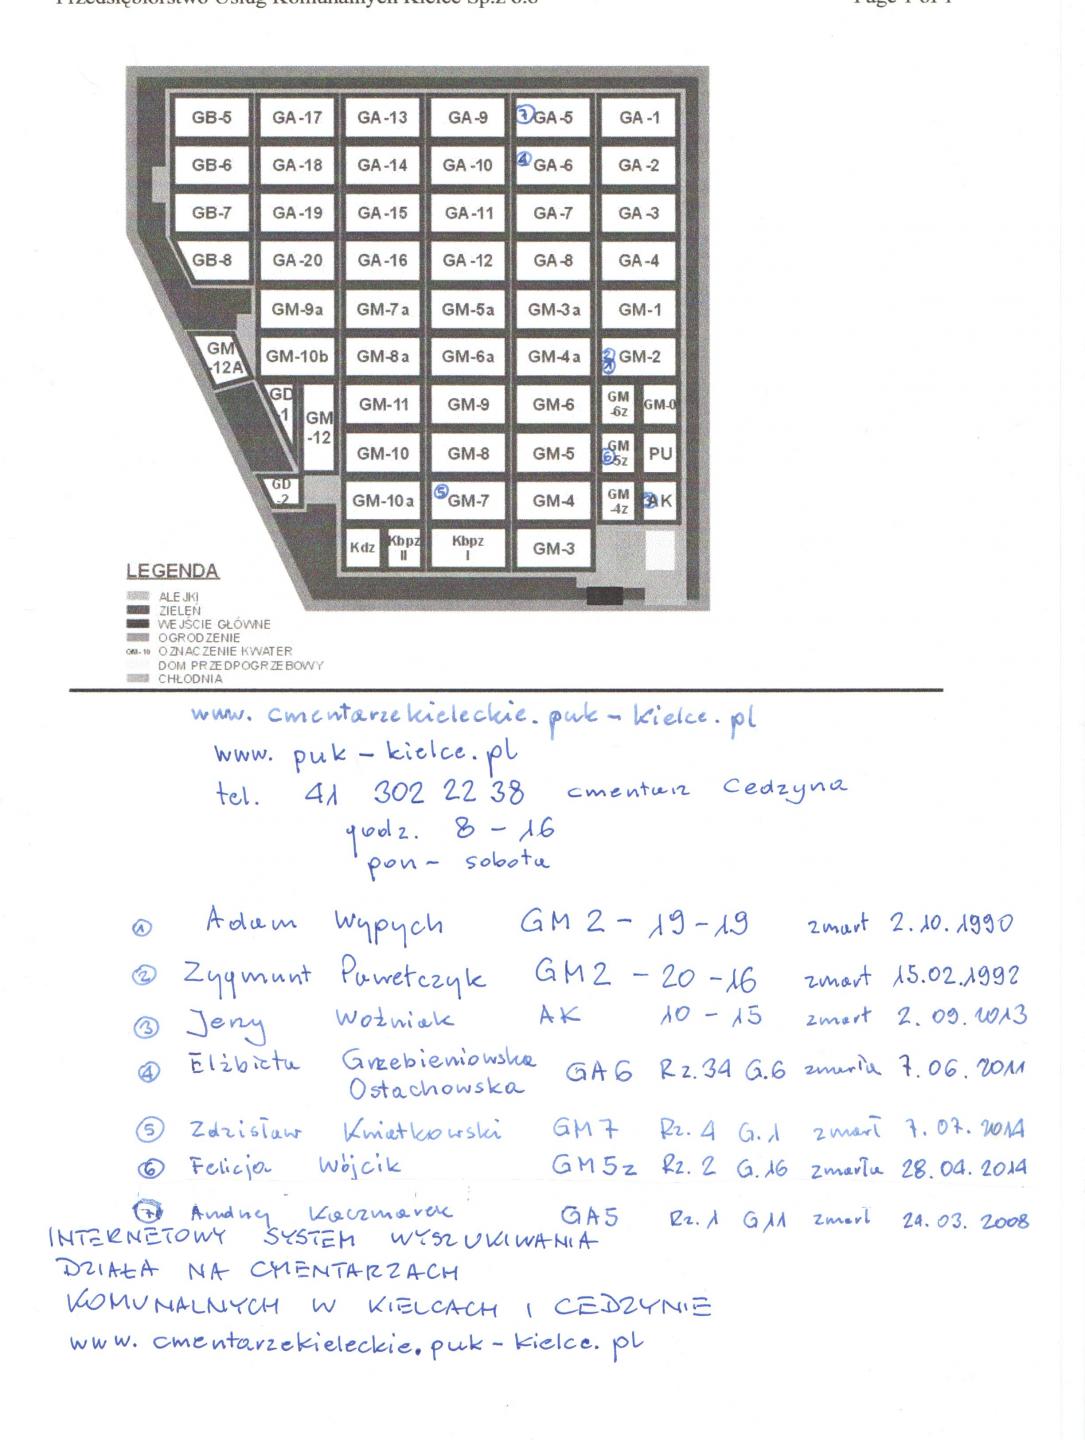 Przedsiębiorstwo Usług Komunalnych Kielce Sp.z o.o Page 1 of 1
GB-5 GA-17 GA-13 GA-9 7 GA-5 GA-1
GB-6 GA-18 GA-14 GA-10 4 GA-6 GA-2
GB-7 GA-19 GA-15 GA-11 GA-7 GA-3
GB-8 GA-20 GA-16 GA-12 GA-8 GA-4
GM-9a GM-7a GM-5a GM-3a GM-1
GM-12A GM-10b GM-8a GM-6a GM-4a 2 1 GM-2
GD-1 GM-12 GM-11 GM-9 GM-6 GM-6z GM-0
GM-10 GM-8 GM-5 6 GM-5z PU
GD-2 GM-10a 5 GM-7 GM-4 GM-4z 3 AK
Kdz Kbpz II Kbpz I GM-3
LEGENDA
ALEJKI
ZIELEŃ
WEJŚCIE GŁÓWNE
OGRODZENIE
GM-10 OZNACZENIE KWATER
DOM PRZEDPOGRZEBOWY
CHŁODNIA
www. cmentarzekieleckie. puk - kielce. pl
www. puk - kielce. pl
tel. 41 302 22 38 cmentarz Cedzyna
godz. 8 - 16
pon - sobota
1 Adam Wypych GM 2 - 19 - 19 zmarł 2.10.1990
2 Zygmunt Pawełczyk GM2 - 20 - 16 zmarł 15.02.1992
3 Jerzy Woźniak AK 10 - 15 zmarł 2.09.2013
4 Elżbieta Grzebieniowska Ostachowska GA6 Rz.34 G.6 zmarła 7.06.2011
5 Zdzisław Kwiatkowski GM7 Rz. 4 G.1 zmarł 7.07.2014
6 Felicja Wójcik GM5z Rz. 2 G.16 zmarła 28.04.2014
7 Andrzej Kaczmarek GA5 Rz.1 G11 zmarł 24.03.2008
INTERNETOWY SYSTEM WYSZUKIWANIA
DZIAŁA NA CMENTARZACH
KOMUNALNYCH W KIELCACH I CEDZYNIE
www. cmentarzekieleckie. puk - kielce. pl